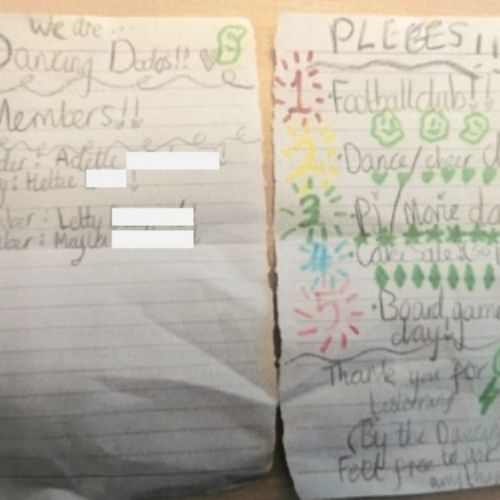 We are...
Dancing Dodos!!
Members!!
der: Adette !
y: Hettie !
ber: Letty
ber: Mayba
PLEGES!!
1 Football club!!
2 Dance/cheer c
3 PJ/Movie da
4 Cake sales (so
5 Board game
day!!
Thank you for
listening
(By the Dancin
Feel free to ask
anythin